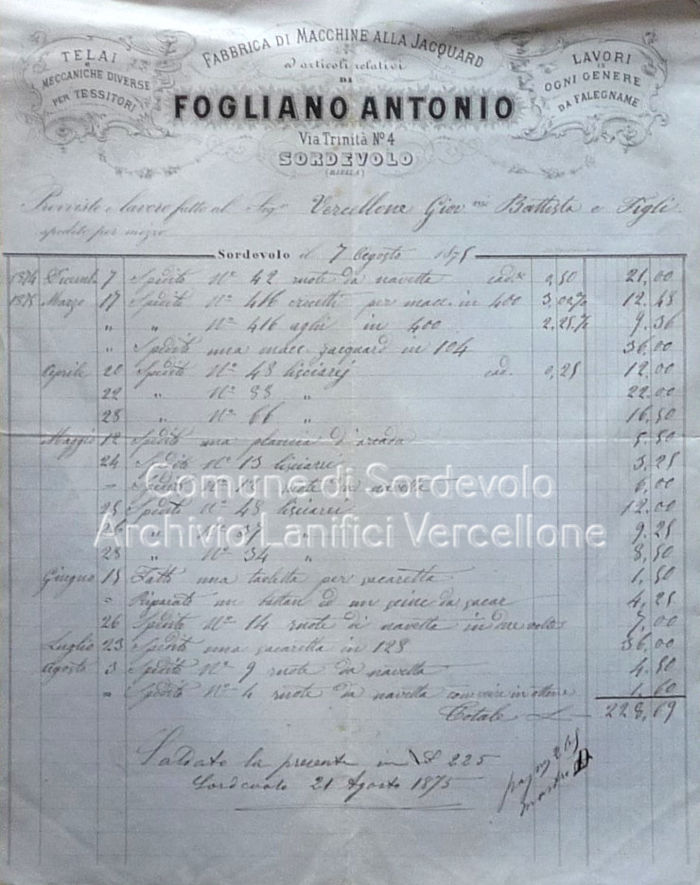 TELAI
E
MECCANICHE DIVERSE
PER TESSITORI
FABBRICA DI MACCHINE ALLA JACQUARD
ed articoli relativi
DI
FOGLIANO ANTONIO
Via Trinità Nº 4
SORDEVOLO
(BIELLA)
LAVORI
IN
OGNI GENERE
DA FALEGNAME
Provviste e lavore fatto al Sig.r Vercellone Giov.nni Battista e Figli
spedito per mezzo
Sordevolo il 7 Agosto 1875
1874 Dicemb. 7 Spedito Nº 42 ruote da navetta cad.e 0,50 21,00
1875 Marzo 17 Spedito Nº 416 per macc. in 400 3,00% 12,48
" " Nº 416 aghi in 400 2.25% 9,36
" Spedito una macc. jacquard in 104 36,00
Aprile 20 Spedito Nº 48 cad. 0,25 12,00
22 " Nº 88 " 22,00
28 " Nº 66 " 16,50
Maggio 12 Spedito una plancia d'arcada 5,50
24 Spedito Nº 13 3,25
Spedito Nº 12 ruote da navetta 6,00
25 Spedito Nº 48 12,00
Nº 37 " 9,25
28 " Nº 34 " 8,50
Giugno 15 Fatto una per 1,50
" Riparato un ed un 4,25
26 Spedito Nº 14 ruote di navetta in due volte 7,00
Luglio 23 Spedito una in 128 36,00
Agosto 3 Spedito Nº 9 ruote da navetta 4,50
" Spedito Nº 4 ruote da navetta in ottone 1,60
Totale L 228,69
Saldato la presente in L 225
Sordevolo 21 Agosto 1875
Comune di Sordevolo
Archivio Lanifici Vercellone